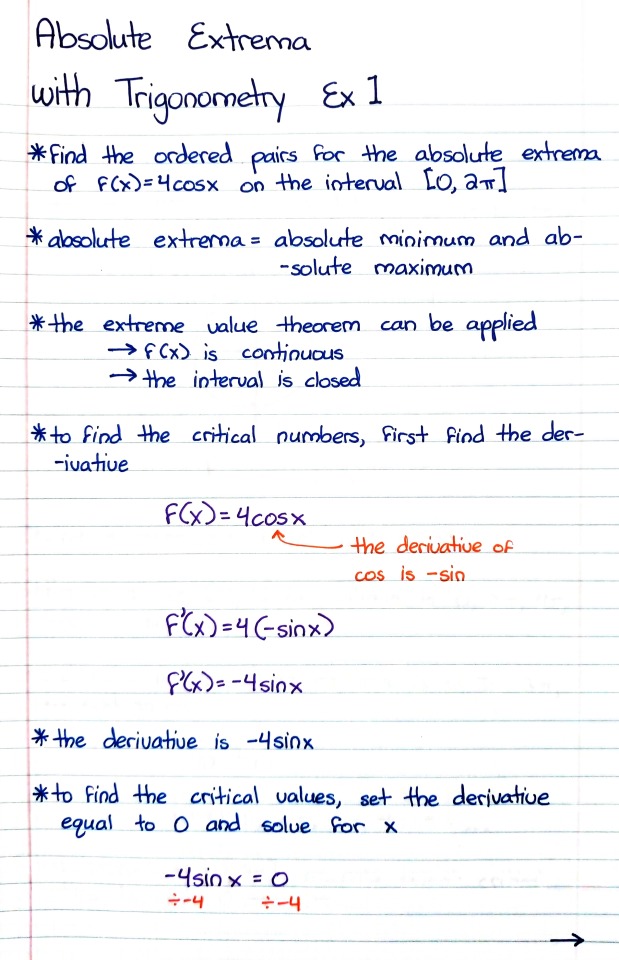 Absolute Extrema
with Trigonometry Ex 1
*Find the ordered pairs for the absolute extrema
of f(x)=4cosx on the interval [0, 2π]
*absolute extrema = absolute minimum and ab-
-solute maximum
*the extreme value theorem can be applied
→ f(x) is continuous
→ the interval is closed
*to find the critical numbers, first find the der-
-ivative
f(x)=4cosx
the derivative of
cos is -sin
f'(x)=4(-sinx)
f'(x)=-4sinx
*the derivative is -4sinx
*to find the critical values, set the derivative
equal to 0 and solve for x
-4sinx = 0
÷-4 ÷-4
→